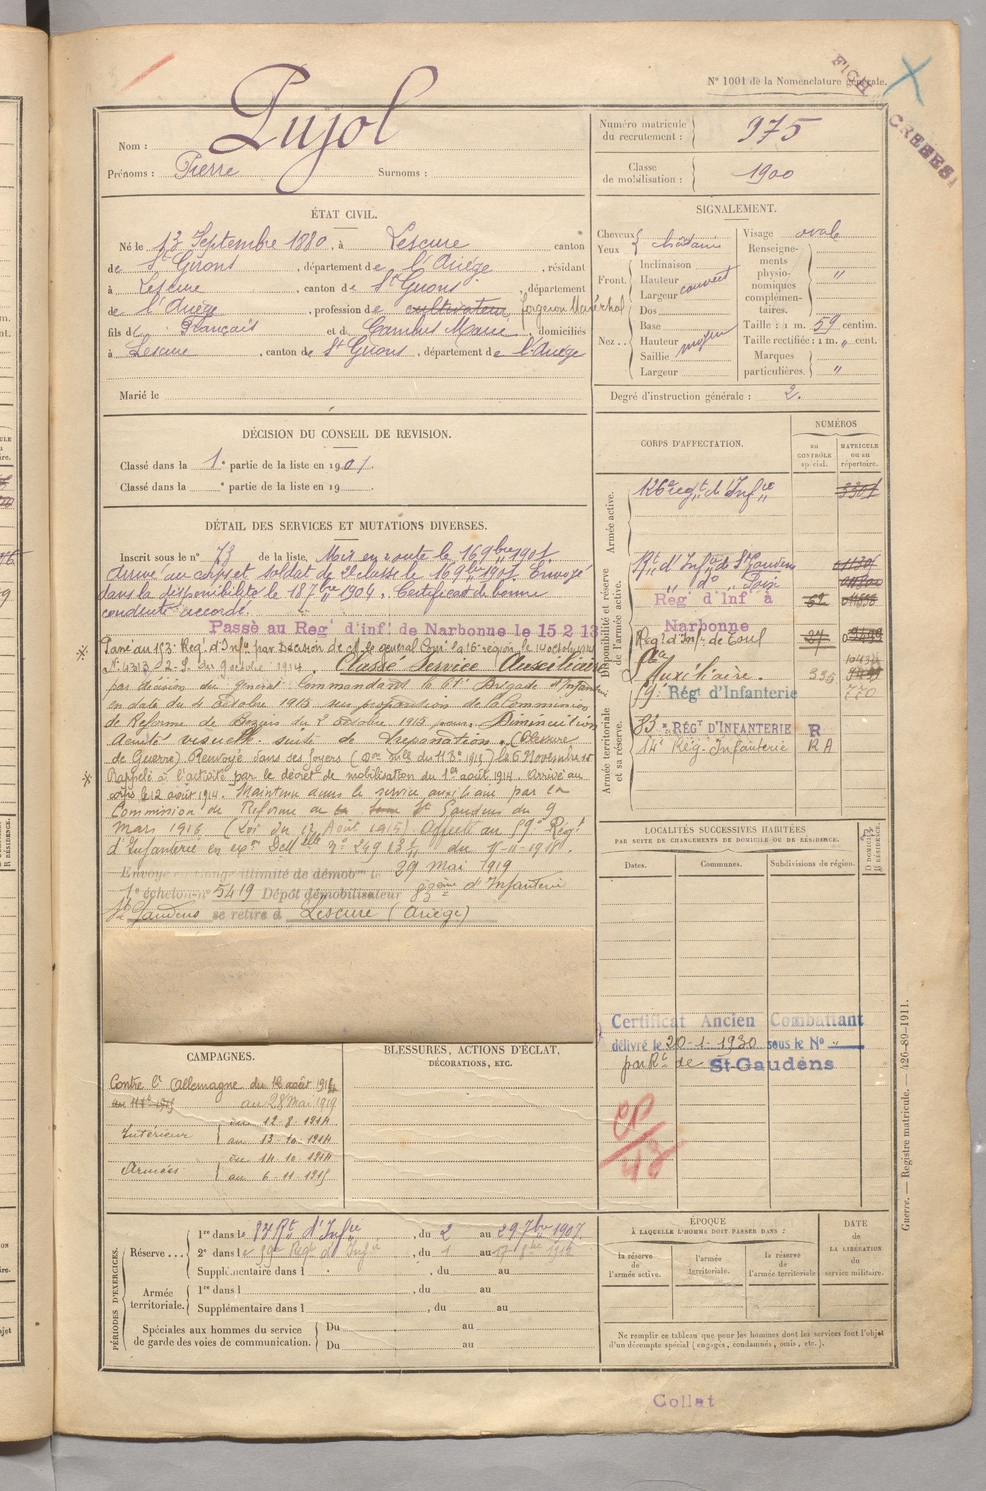 N° 1001 de la Nomenclature générale.
Nom : Pujol
Prénoms : Pierre Surnoms :
Numéro matricule du recrutement : 975
Classe de mobilisation : 1900
ÉTAT CIVIL.
Né le 13 Septembre 1880, à Lescure canton
de St Girons, département de l'Ariège, résidant
à Lescure, canton de St Girons, département
de l'Ariège, profession de cultivateur, forgeron Maréchal
fils de François et de Cambus Marie, domiciliés
à Lescure, canton de St Girons, département de l'Ariège
Marié le
SIGNALEMENT.
Cheveux
Yeux châtains
Front. Inclinaison
Hauteur
Largeur couvert
Nez.. Dos
Base
Hauteur
Saillie moyen
Largeur
Visage ovale
Renseignements physionomiques complémentaires. "
Taille : 1 m. 59 centim.
Taille rectifiée : 1 m. " cent.
Marques particulières. "
Degré d'instruction générale : 2.
DÉCISION DU CONSEIL DE REVISION.
Classé dans la 1e partie de la liste en 1901.
Classé dans la e partie de la liste en 19
DÉTAIL DES SERVICES ET MUTATIONS DIVERSES.
Inscrit sous le n° 73 de la liste. Mis en route le 16 9bre 1901.
Arrivé au corps et soldat de 2e classe le 16 9bre 1901. Envoyé
dans la disponibilité le 18 7bre 1904. Certificat de bonne
conduite accordé.
Passè au Reg' d'inf' de Narbonne le 15 2 13
Passé au 113e Reg. d'Infie par décision de M. le général Comt la 16e région, le 14 octobre 1914
N° 4313 2-9 du 9 octobre 1914. Classé Service Auxiliaire
par décision du général Commandant la 61e Brigade d'Infanterie
en date du 4 Octobre 1915 sur proposition de la Commission
de Réforme de Béziers du 2 Octobre 1915 pour : Diminution
Acuité visuelle suite de trépanation. (Blessure
de Guerre) Renvoyé dans ses foyers le 6 Novembre 15
Rappelé à l'activité par le décret de mobilisation du 1er août 1914. Arrivé au
corps le 12 août 1914. Maintenu dans le service auxiliaire par la
Commission de Réforme de St Gaudens du 9
Mars 1916 (Loi du 17 Août 1915) Affecté au 59e Régt
d'Infanterie en exon Dclle n° 24983
Envoyé en congé illimité de démobon le 29 Mai 1919
1e échelon n° 5419 Dépôt démobilisateur 83ème d'Infanterie
St Gaudens se retire à Lescure (Ariège)
CORPS D'AFFECTATION.
NUMÉROS
au CONTRÔLE spécial.
MATRICULE ou au répertoire.
Armée active.
126e regt d'Infie
Disponibilité et réserve de l'armée active.
Rt d'Infie de St Gaudens
" do " Foix
Reg' d'Inf' à
Narbonne
Regt d'Infie de Toul
Armée territoriale et sa réserve.
Auxiliaire.
59e Régt d'Infanterie 770
83e RÉGT D'INFANTERIE R
14e Rég. Infanterie R A
LOCALITÉS SUCCESSIVES HABITÉES
PAR SUITE DE CHANGEMENTS DE DOMICILE OU DE RÉSIDENCE.
Dates. Communes. Subdivisions de région.
D DOMICILE R RÉSIDENCE.
Certificat Ancien Combattant
délivré le 20-1-1930 sous le N° "
par Rt de St-Gaudens
CAMPAGNES.
Contre l'Allemagne du 12 août 1914
au 28 Mai 1919
Intérieur du 12-8-1914
au 13-10-1914
Armées du 14-10-1914
au 6-11-1915
BLESSURES, ACTIONS D'ÉCLAT,
DÉCORATIONS, ETC.
PÉRIODES D'EXERCICES.
Réserve... 1re dans le 87 Rt d'Infie, du 2 au 29 7bre 1907.
2e dans le 59e Regt d'Infie, du 1 au 17
Supplémentaire dans l , du au
Armée territoriale. 1re dans l , du au
Supplémentaire dans l , du au
Spéciales aux hommes du service de garde des voies de communication. Du au
Du au
ÉPOQUE
À LAQUELLE L'HOMME DOIT PASSER DANS :
la réserve de l'armée active.
l'armée territoriale.
la réserve de l'armée territoriale
DATE de LA LIBÉRATION du service militaire.
Ne remplir ce tableau que pour les hommes dont les services font l'objet
d'un décompte spécial (engagés, condamnés, omis, etc.).
Guerre. — Registre matricule. — 426-89-1911.
Collat